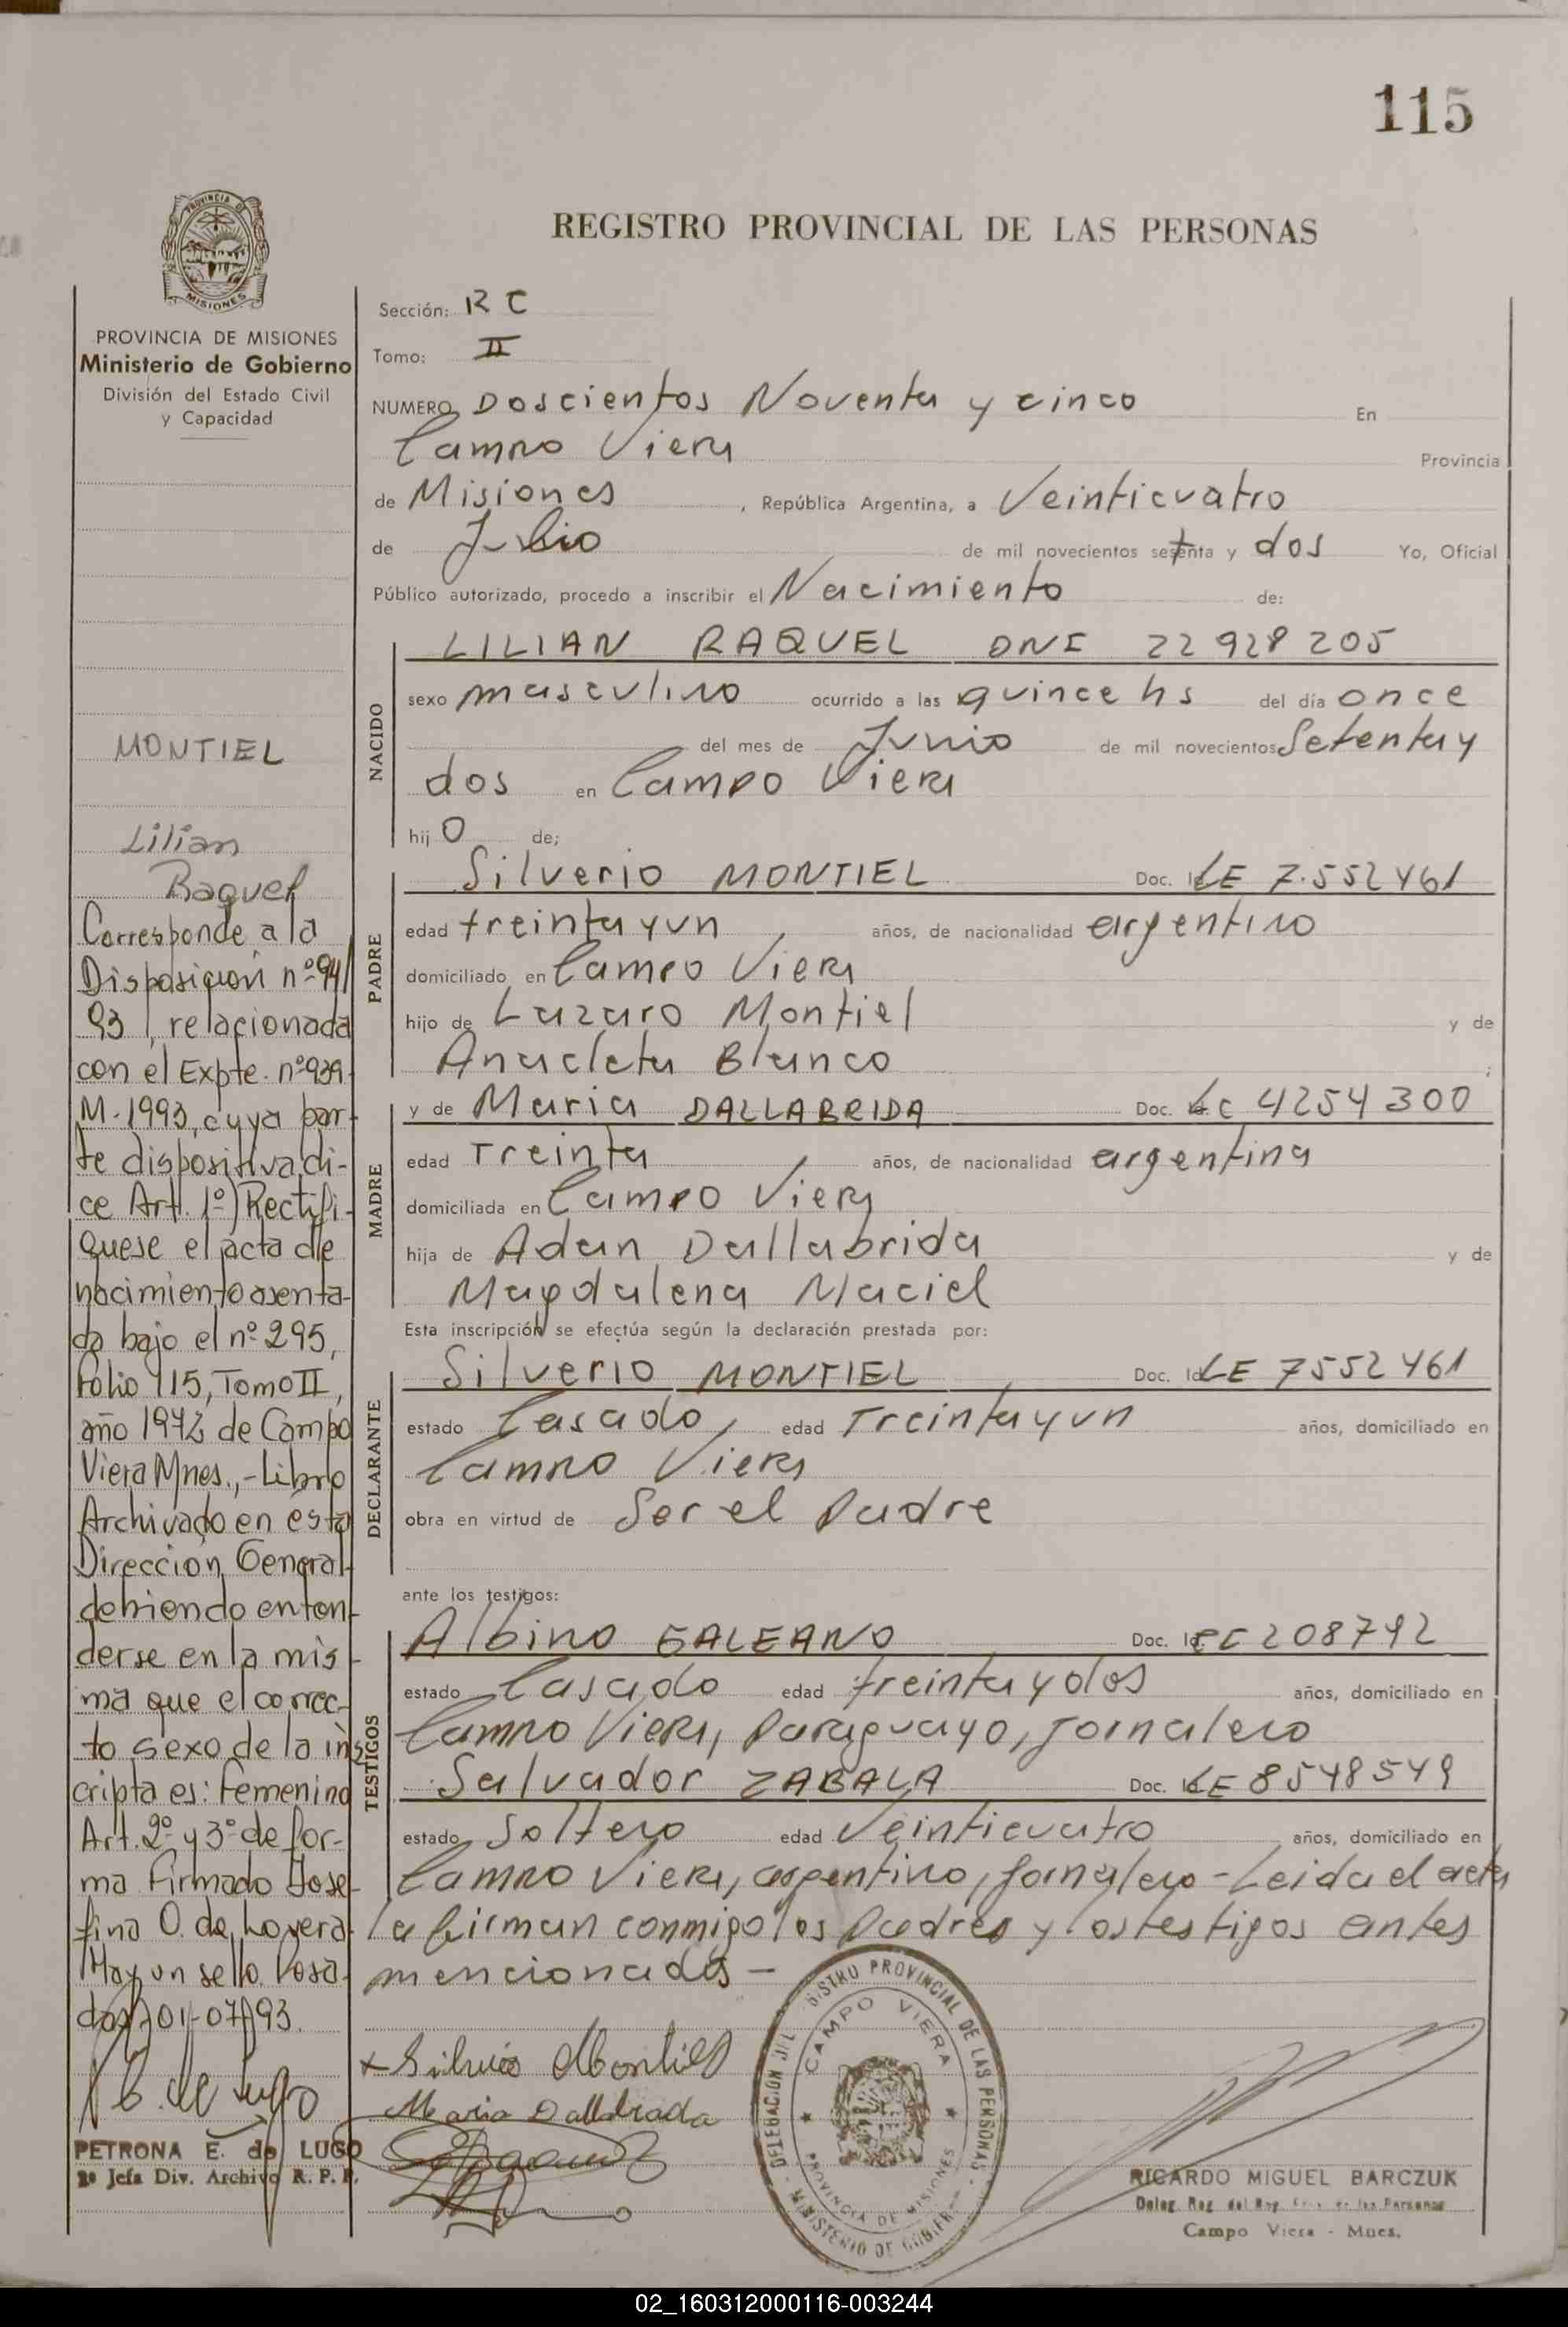 115
PROVINCIA DE
MISIONES
REGISTRO PROVINCIAL DE LAS PERSONAS
PROVINCIA DE MISIONES
Ministerio de Gobierno
División del Estado Civil
y Capacidad
MONTIEL
Lilian
Raquel
Corresponde a la
Disposición nº 941
93, relacionada
con el Expte. nº 939.
M-1993, cuya par-
te dispositiva di-
ce Art. 1º) Rectifi-
quese el acta de
nacimiento asenta-
da bajo el nº 295,
folio 115, Tomo II,
año 1972 de Campo
Viera Mnes., - Libro
Archivado en ésta
Dirección General
debiendo enten-
derse en la mis-
ma que el correc-
to sexo de la ins
cripta es: femenino
Art. 2º y 3º de for-
ma Firmado Jose-
fina O. de Lovera
Hay un sello. Posa-
das, 01-07-93.
PETRONA E. de LUGO
2ª Jefa Div. Archivo R. P. P.
Sección: R C
Tomo: II
NUMERO Doscientos Noventa y cinco En
Campo Viera Provincia
de Misiones, República Argentina, a Veinticuatro
de Julio de mil novecientos setenta y dos Yo, Oficial
Público autorizado, procedo a inscribir el Nacimiento de:
NACIDO
LILIAN RAQUEL DNI 22 928 205
sexo masculino ocurrido a las quince hs del día once
del mes de Junio de mil novecientos Setenta y
dos en Campo Viera
hij o de;
PADRE
Silverio MONTIEL Doc. Id LE 7.552461
edad treinta y un años, de nacionalidad argentino
domiciliado en Campo Viera
hijo de Lazaro Montiel y de
Anacleta Blanco ;
MADRE
y de Maria DALLABRIDA Doc. LC 4254300
edad Treinta años, de nacionalidad argentina
domiciliada en Campo Viera
hija de Adan Dallabrida y de
Magdalena Maciel
Esta inscripción se efectúa según la declaración prestada por:
DECLARANTE
Silverio MONTIEL Doc. Id LE 7552461
estado Casado, edad Treinta y un años, domiciliado en
Campo Viera
obra en virtud de Ser el Padre
ante los testigos:
TESTIGOS
Albino GALEANO Doc. Id 208792
estado Casado edad treinta y dos años, domiciliado en
Campo Viera, Paraguayo, Jornalero
Salvador ZABALA Doc. Id LE 8548549
estado Soltero edad Veinticuatro años, domiciliado en
Campo Viera, argentino, Jornalero - Leida el acta
la firman conmigo los Padres y los testigos antes
mencionados -
x Silverio Montiel
Maria Dallabrida
CAMPO VIERA
PROVINCIA DE MISIONES
RICARDO MIGUEL BARCZUK
Campo Viera - Mnes.
02_160312000116-003244